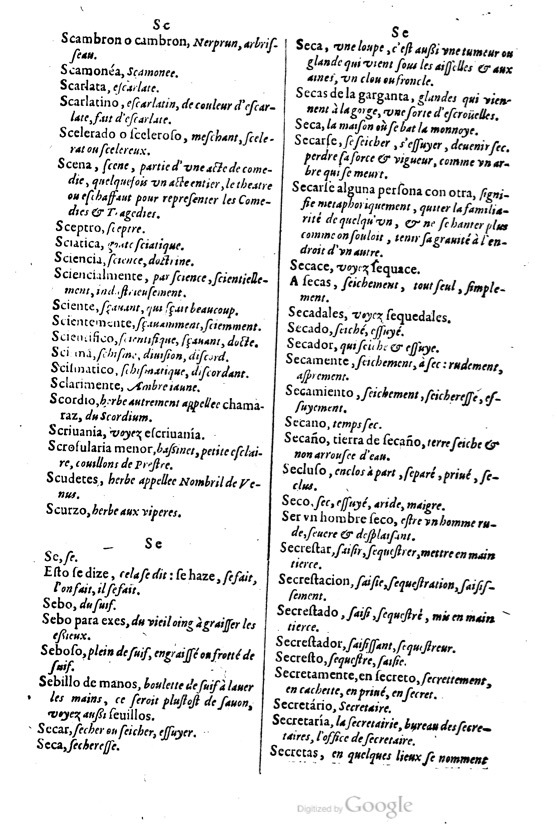 Sc
Scambron o cambron, Nerprun, arbris-
ſeau.
Scamonéa, Scamonee.
Scarlata, eſcarlate.
Scarlatino, eſcarlatin, de couleur d'eſcar-
late, fait d'eſcarlate.
Scelerado o sceleroso, meſchant, ſcele-
rat ou ſcelereux.
Scena, ſcene, partie d'vne acte de come-
die, quelquefois vn acte entier, le theatre
ou eſchaffaut pour repreſenter les Come-
dies & Tragedies.
Sceptro, ſceptre.
Sciatica, goute ſciatique.
Sciencia, ſcience, doctrine.
Sciencialmente, par ſcience, ſcientielle-
ment, induſtrieuſement.
Sciente, ſçauant, qui ſçait beaucoup.
Scientemente, ſçauamment, ſciemment.
Scientifico, ſcientifique, ſçauant, docte.
ſchiſme, diuiſion, diſcord.
Sciſmatico, ſchiſmatique, diſcordant.
Sclarimente, Ambre iaune.
Scordio, herbe autrement appellee chama-
raz, du Scordium.
Scriuania, voyez eſcriuanía.
Scrofularia menor, baſsinet, petite eſclai-
re, couillons de Preſtre.
Scudetes, herbe appellee Nombril de Ve-
nus.
Scurzo, herbe aux viperes.
Se
Se, ſe.
Eſto ſe dize, cela ſe dit : ſe haze, ſe fait,
l'on fait, il ſe fait.
Sebo, du ſuif.
Sebo para exes, du vieil oing à graiſſer les
eſsieux.
Seboſo, plein de ſuif, engraiſſé ou frotté de
ſuif.
Sebillo de manos, boulette de ſuif à lauer
les mains, ce ſeroit pluſtoſt de ſauon,
voyez auſsi ſeuillos.
Secar, ſecher ou ſeicher, eſſuyer.
Seca, ſechereſſe.
Se
Seca, vne loupe, c'eſt auſsi vne tumeur ou
glande qui vient ſous les aiſſelles & aux
aines, vn clou ou froncle.
Secas de la garganta, glandes qui vien-
nent à la gorge, vne ſorte d'eſcroüelles.
Seca, la maiſon où ſe bat la monnoye.
Secarſe, ſe ſeicher, s'eſſuyer, deuenir ſec,
perdre ſa force & vigueur, comme vn ar-
bre qui ſe meurt.
Secarſe alguna perſona con otra, ſigni-
fie metaphoriquement, quitter la familia-
rité de quelqu'vn, & ne ſe hanter plus
comme on ſouloit, tenir ſa grauité à l'en-
droit d'vn autre.
Secace, voyez ſequace.
A ſecas, ſeichement, tout ſeul, ſimple-
ment.
Secadales, voyez ſequedales.
Secado, ſeiché, eſſuyé.
Secador, qui ſeiche & eſſuye.
Secamente, ſeichement, à ſec : rudement,
aſprement.
Secamiento, ſeichement, ſeichereſſe, eſ-
ſuyement.
Secano, temps ſec.
Secaño, tierra de ſecaño, terre ſeiche &
non arrouſee d'eau.
Secluſo, enclos à part, ſeparé, priué, ſe-
clus.
Seco, ſec, eſſuyé, aride, maigre.
Ser vn hombre ſeco, eſtre vn homme ru-
de, ſeuere & deſplaiſant.
Secreſtar, ſaiſir, ſequeſtrer, mettre en main
tierce.
Secreſtacion, ſaiſie, ſequeſtration, ſaiſiſ-
ſement.
Secreſtado, ſaiſi, ſequeſtré, mis en main
tierce.
Secreſtador, ſaiſiſſant, ſequeſtreur.
Secreſto, ſequeſtre, ſaiſie.
Secretamente, en ſecreto, ſecrettement,
en cachette, en priué, en ſecret.
Secretário, Secretaire.
Secretaria, la ſecretairie, bureau des ſecre-
taires, l'office de ſecretaire.
Secretas, en quelques lieux ſe nomment
Digitized by Google